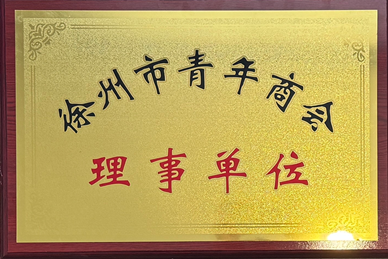 徐州市青年商会
理事单位